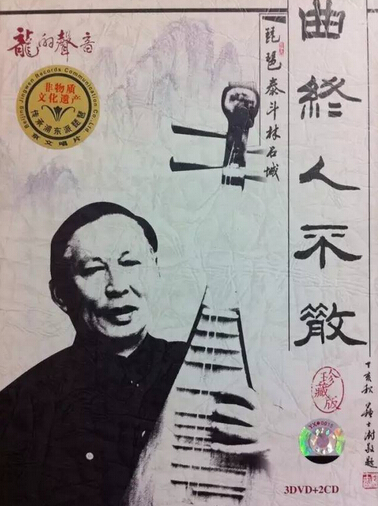 龍的聲音
曲終人不散
琵琶泰斗林石城
Beijing Jingwen Records Communication Co.Ltd
非物质
文化遗产
传承浦东派琵琶
京文唱片
珍藏版
丁亥秋
3DVD+2CD